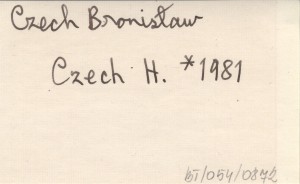 Czech Bronisław
Czech H. *1981
bT/054/0872